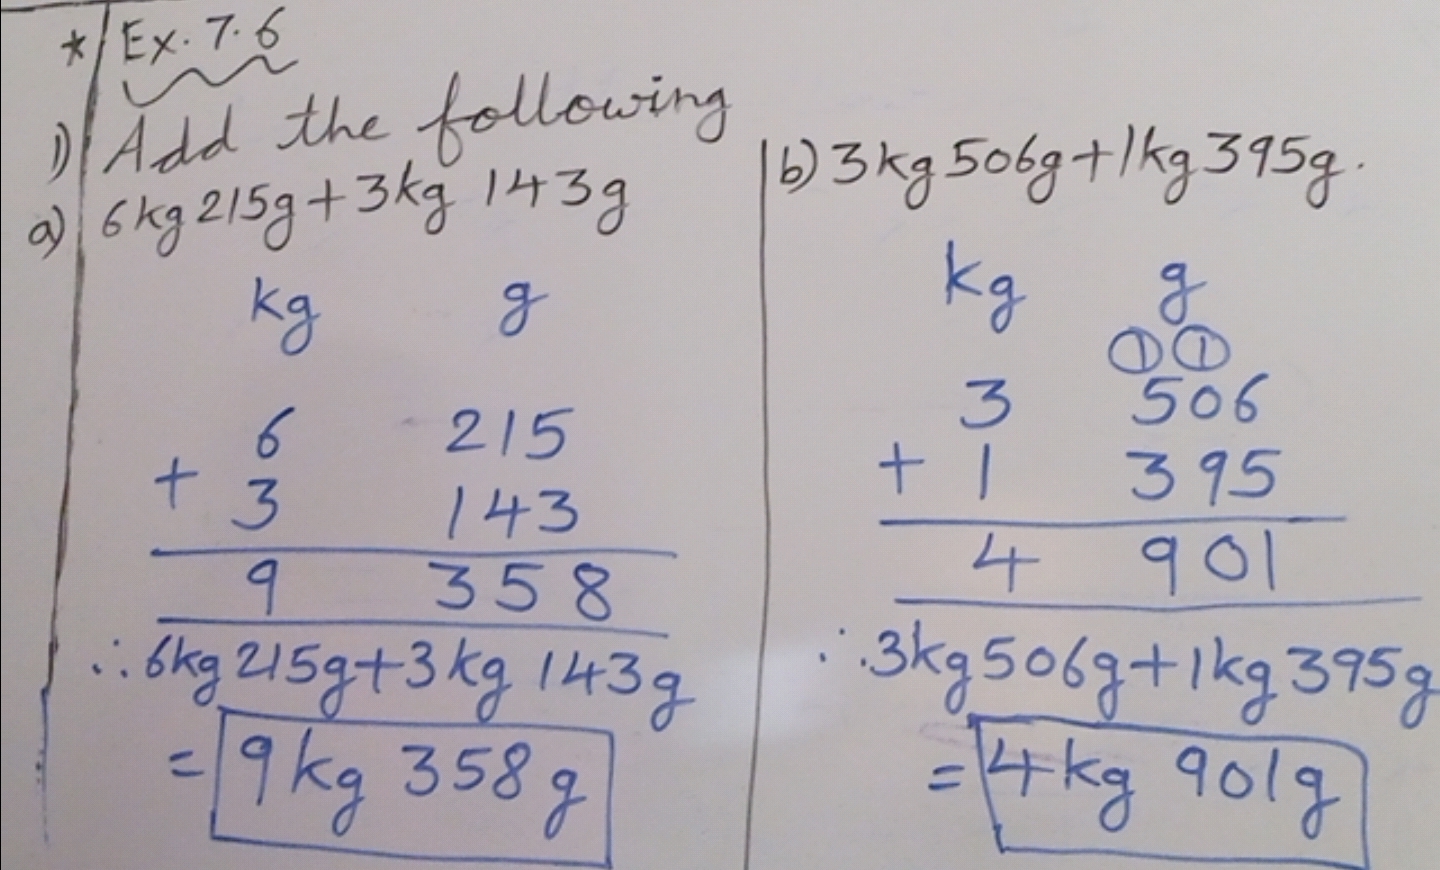 * Ex. 7.6
1) Add the following
a) 6kg 215g + 3kg 143g
kg g
6 215
+ 3 143
9 358
∴ 6kg 215g + 3kg 143g
= 9kg 358g
b) 3kg 506g + 1kg 395g.
kg g
1 1
3 506
+ 1 395
4 901
∴ 3kg 506g + 1kg 395g
= 4kg 901g